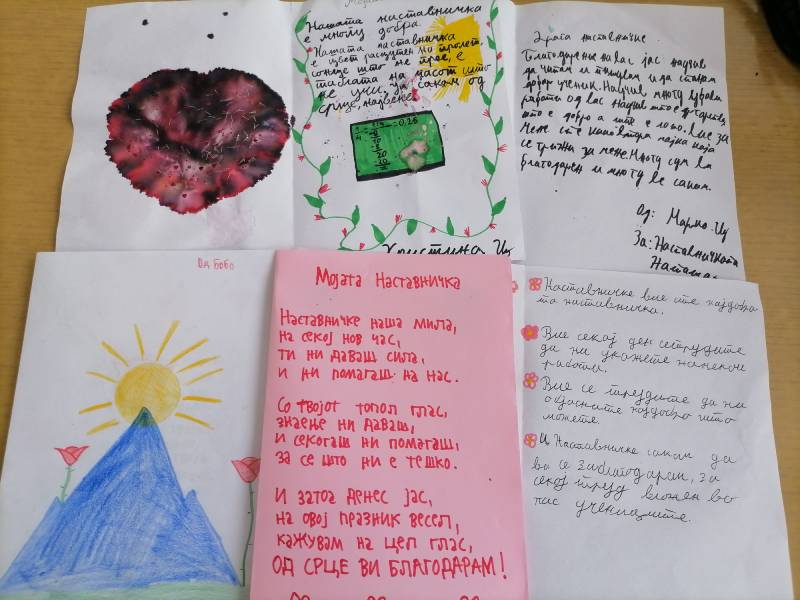 Нашата наставничка
е многу добра.
Нашата наставничка
е цвет расцутен на пролет,
сонце што не грее, е
таблата на часот што
не учи. Ја сакам од
срце, највеќе.
= 0,25
20
Христина
Драга наставничке
Благодарение на вас јас научив
да читам и пишувам и да станам
добар ученик. Научив многу убави
работи од вас научив што е
што е добро а што е лошо. Вие за
мене сте како втора мајка која
се грижи за мене. Многу сум ви
благодарен и многу ве сакам.
Од: Марко
За: Наставничката
Наташа
Од Бобо
Мојата Наставничка
Наставничке наша мила,
на секој нов час,
ти ни даваш сила,
и ни помагаш на нас.
Со твојот топол глас,
знаење ни даваш,
и секогаш ни помагаш,
за се што ни е тешко.
И затоа денес јас,
на овој празник весел,
кажувам на цел глас,
ОД СРЦЕ ВИ БЛАГОДАРАМ!
Наставничке вие сте најдобра
та наставничка.
Вие секој ден се трудите
да ни укажете на некои
работи.
Вие се трудите да ни
објасните најдобро што
можете.
И Наставничке сакам да
ви се заблагодарам, за
секој труд вложен во
нас учениците.